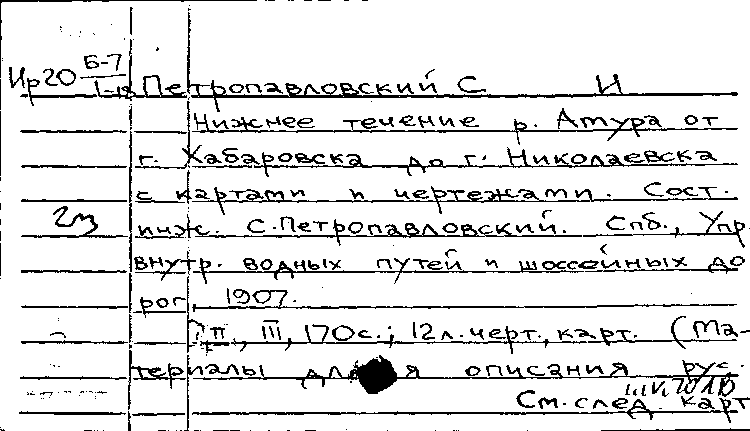 Ир20 Б-7
1-18 Петропавловский С И
Нижнее течение р. Амура от
г. Хабаровска до г. Николаевска
с картами и чертежами. Сост.
2м инж. С. Петропавловский. Спб., Упр.
внутр. водных путей и шоссейных до
рог, 1907.
II, III, 170с.; 12л. черт., карт. (Ма-
териалы для описания рус.
См. след. карт